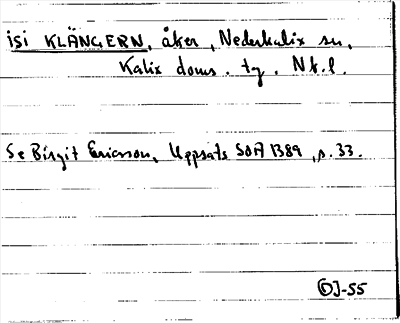 isi KLÄNGERN, åker, Nederkalix sn,
Kalix doms. tg. Nb.l.
Se Birgit Ericsson, Uppsats SOA 1389, s. 33.
DJ-55